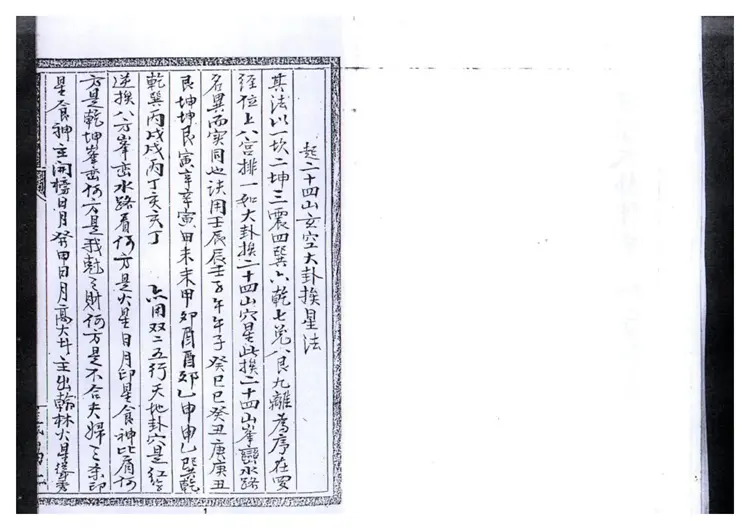 起二十四山玄空大卦挨星法
其法以一坎二坤三震四巽六乾七兌八艮九離為序在罗
經位上八宮排一如大卦挨二十四山穴星此挨二十四山峯巒水路
名異而實同也訣用壬辰辰壬子午午子癸巳巳癸丑庚庚丑
艮坤坤艮寅辛辛寅甲未未甲卯酉酉卯乙申申乙巽乾
乾巽丙戌戌丙丁亥亥丁 亦用双二五行天地卦穴是红
逆挨八方峯巒水路看何方是火星日月印星食神比肩何
方是乾坤峯巒何方是我尅之財何方是不合夫婦之杀印
星食神主開檯日月癸甲日月高大斗主出翰林火星
1